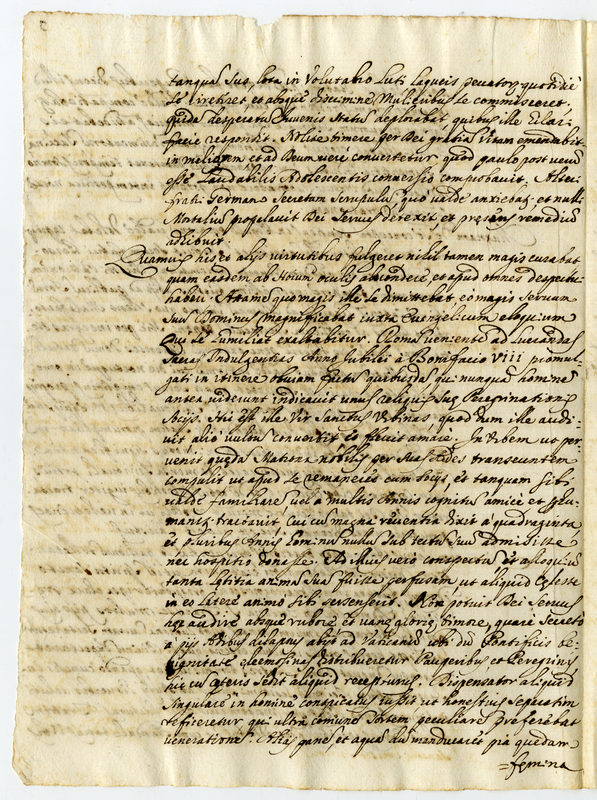 tanquã Sus lota in Volutabro Luti laqueis peccatorũ quotidiè
se irretiret et absque discrimine Mulieribus se commisceret.
quidã desperatũ Juvenis statũ deplorabat quibus ille hilari
facie respondit. Nolite timere per Dei gratiã vitam emendabit
in meliorem et ad Deum verè convertetur quod paulo post verũ
esse Laudabilis Adolescentis conversio comprobavit. Alteri
fratri Germano Secretum Scrupulũ, quo valdè anxiebatur et nulli
Mortaliũ propalavit Dei Servus detexit, et præsens remediũ
adhibuit.
Quamvis his et alijs virtutibus fulgeret nihil tamen magis curabat
quam easdem ab Hoĩum oculis abscondere, et apud omnes despectu
haberi. Attamẽ quo magis ille se dimittebat, eo magis Servum
suũ Dominus magnificabat iuxta Evangelicum eloquium
Qui se humiliat exaltabitur. Romã veniente ad Lucrandas
Sacras Indulgentias Anno Iubilei à Bonifacio VIII promul-
gati in itinere obviam factis quibusdã qui nunquã hominẽ
antea viderant indicavit unus reliquis suæ Peregrinationis
socijs. Hic est ille Vir Sanctus Urbinas, quod dum ille audi-
vit alio vultũ convertit et flevit amarè. In Urbem ut per-
venit quædã Matrona nobilis per suas Ædes transeuntem
compulit ut apud se remaneret cum socijs, et tanquam sibi
valdè familiarẽ, vel à multis Annis cognitũ amicè et
tractavit, cui cũ magna reverentia dixit à quadraginta
et pluribus Annis hominẽ nullũ sub tectũ suũ admisisse
nec hospitio donasse. Ad illius verò conspectũ, et alloquiũ
tanta lætitia animã suã fuisse perfusam, ut aliquid cæleste
in eo latere animo sibi persenserit. Non potuit Dei Servus
hæc audire absque rubore et vanæ gloriæ timore, quare Secretò
à pijs Ædibus elapsus abijt ad Vaticanũ ubi dũ Pontificis be-
nignitate eleemosinas distribueretur Pauperibus et Peregrinis
hic cũ cæteris sedit aliquid recepturus. Dispensator aliquid
singulare in homine conspicatus iussit ut honestius separatim
reficeretur, qui ultra comunẽ sortem peculiarẽ præferebat
venerationẽ. Aliàs panẽ et aquã dũ manducaret pia quedam
=femina